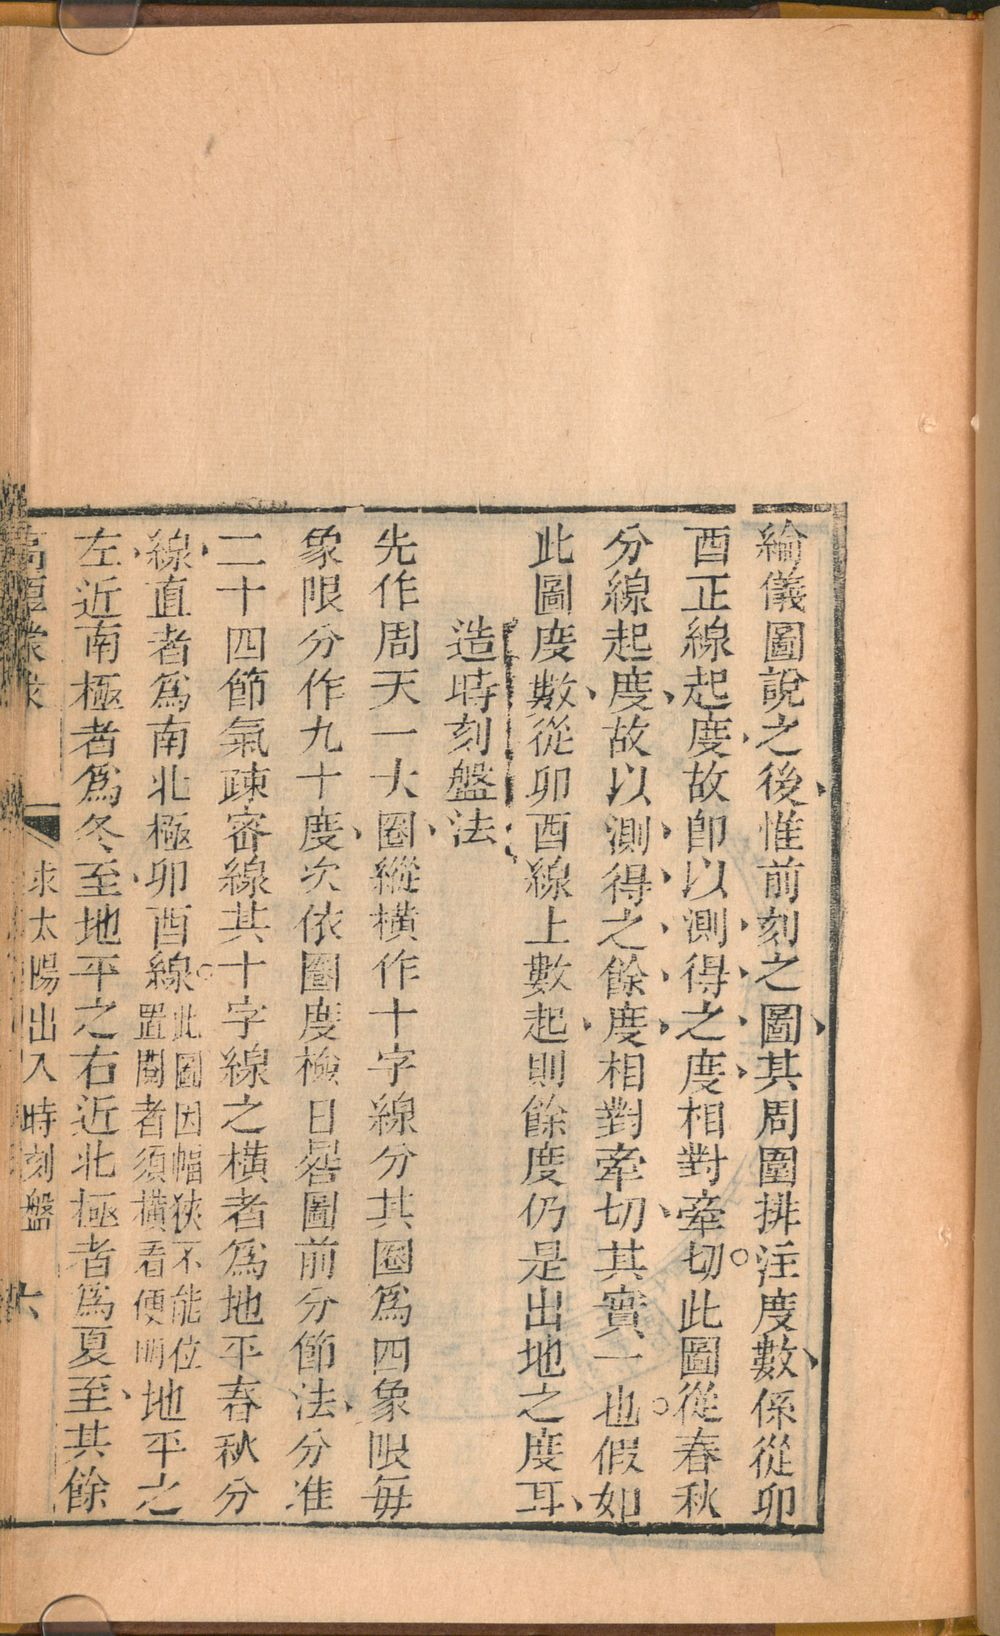 綸儀圖說之後惟前刻之圖其周圍排注度數係從卯
酉正線起度故卽以測得之度相對牽切此圖從春秋
分線起度故以測得之餘度相對牽切其實一也假如
此圖度數從卯酉線上數起則餘度仍是出地之度耳
造時刻盤法
先作周天一大圈縱橫作十字線分其圈爲四象限每
象限分作九十度次依圖度檢日晷圖前分節法分准
二十四節氣疎密線其十字線之橫者爲地平春秋分
線直者爲南北極卯酉線此圖因幅狹不能位置閱者須橫看便明地平之
左近南極者爲冬至地平之右近北極者爲夏至其餘
高厚蒙求 求太陽出入時刻盤 六